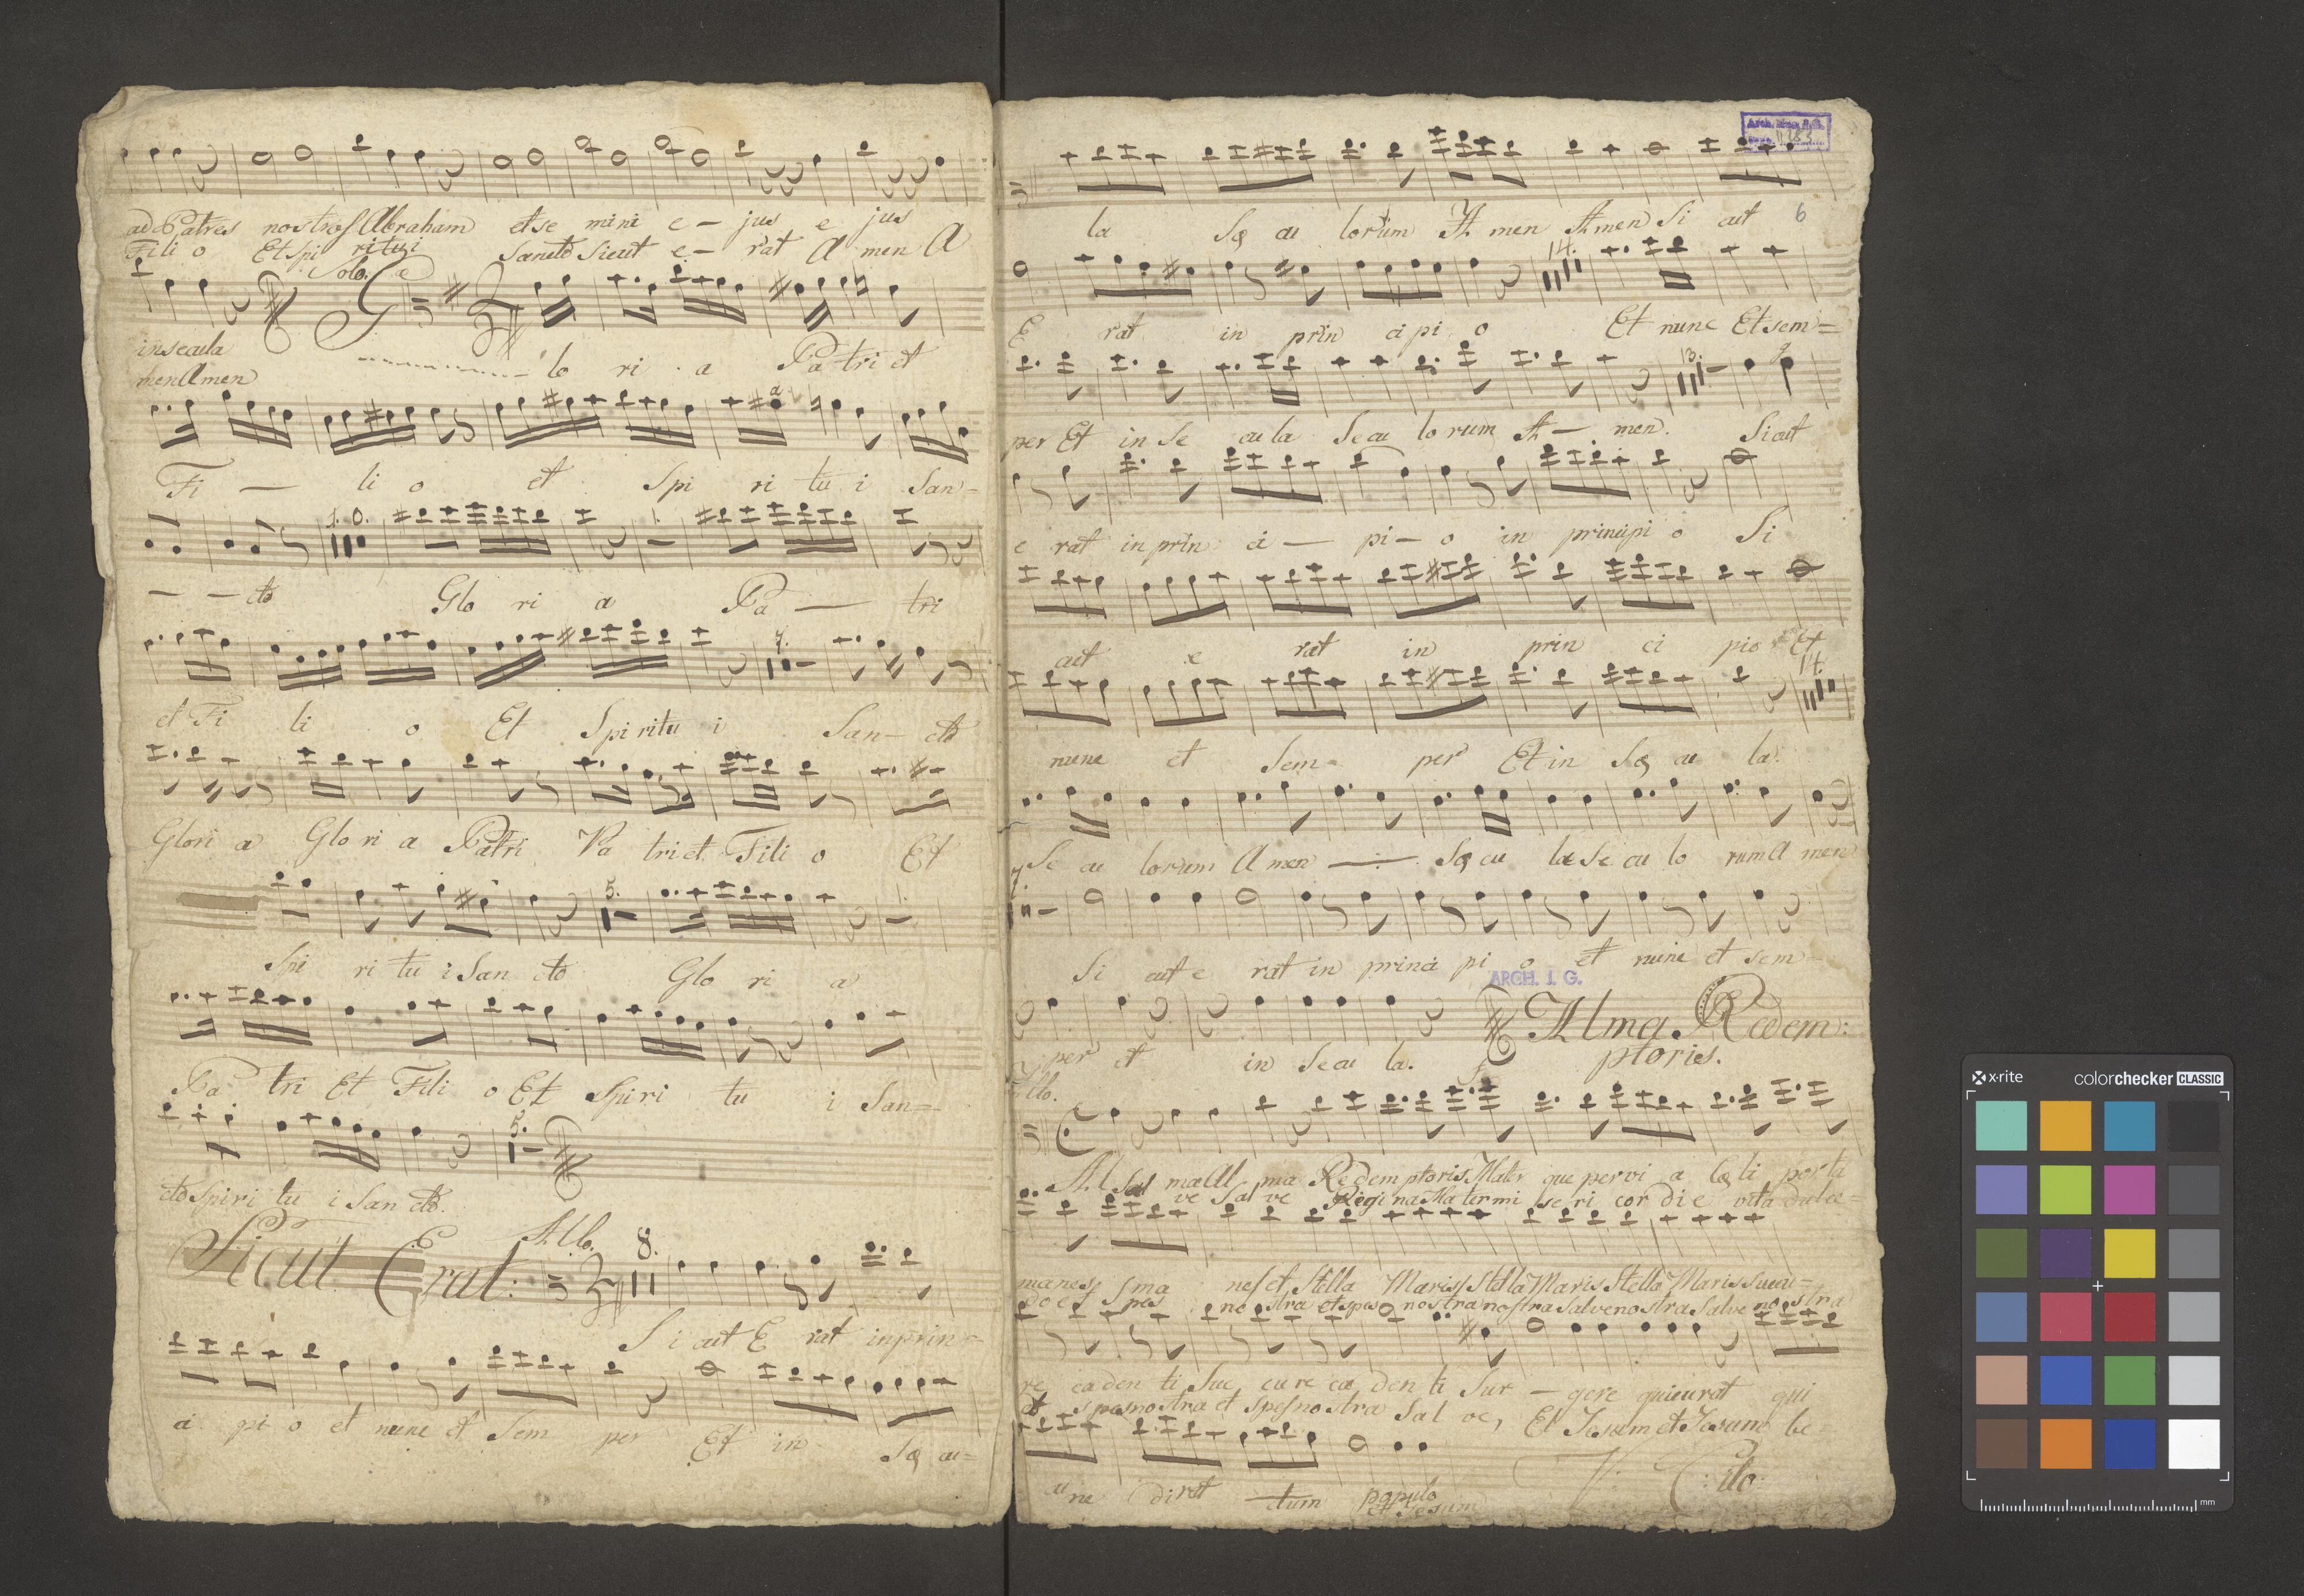 ad Patres nostros Abraham et se mini e – jus e jus
Fili o Et Spi ritui Sancto Sicut e – rat A men A
Solo.
in secula
men Amen
lo ri a Pa tri et
Fi — li o et Spi ri tu i San=
1. 0. 1.
— — cto Glo ri a Pa — tri
et Fi li o Et Spi ritu i San – cto
Glori a Glo ri a Patri Pa tri et Fili o Et
5.
Spi ri tu i San cto Glo ri a
Pa tri Et Fili o Et Spi ri tu i San=
5.
cto Spi ri tu i San cto.
Sicut Erat: Allo. 8.
Si cut E rat in prin=
ci pi o et nunc et Sem per Et in Sæ cu=
Arch.
la Sæ cu lorum A men Amen Si cut 6
14.
E rat in prin cipi o Et nunc Et sem=
13.
per Et in Se cula Secu lo rum A — men. Sicut
e rat in prin ci — pi – o in principi o Si
cut e rat in prin ci pio Et
14.
nunc et Sem per Et in Sæ cu la.
Se cu lorum A men — Sæ cu la Se cu lo rum A men
Si cut e rat in princi pi o et nunc et sem–
ARCH. J. G.
Alma Redem:
ptoris.
per et in Secu la.
Allo.
Al ma Al ma Redemptoris Mater que pervi a Cæli porta
Sal ve Sal ve Regi na Ma ter mi se ri cor di e vita dulce=
manes ma nes et Stella Maris Stella Maris Stella Maris Sucu=
do et Spes no stra et spes nostra nostra salve nostra Salve nostra
re caden ti Suc cu re ca den ti Sur – gere qui curat qui
et spes nostra et spes nostra Sal ve, Et Jesum et Jesum be
cu
ne di ct tum populo
et Jesum
V: Cito
x·rite colorchecker CLASSIC
mm